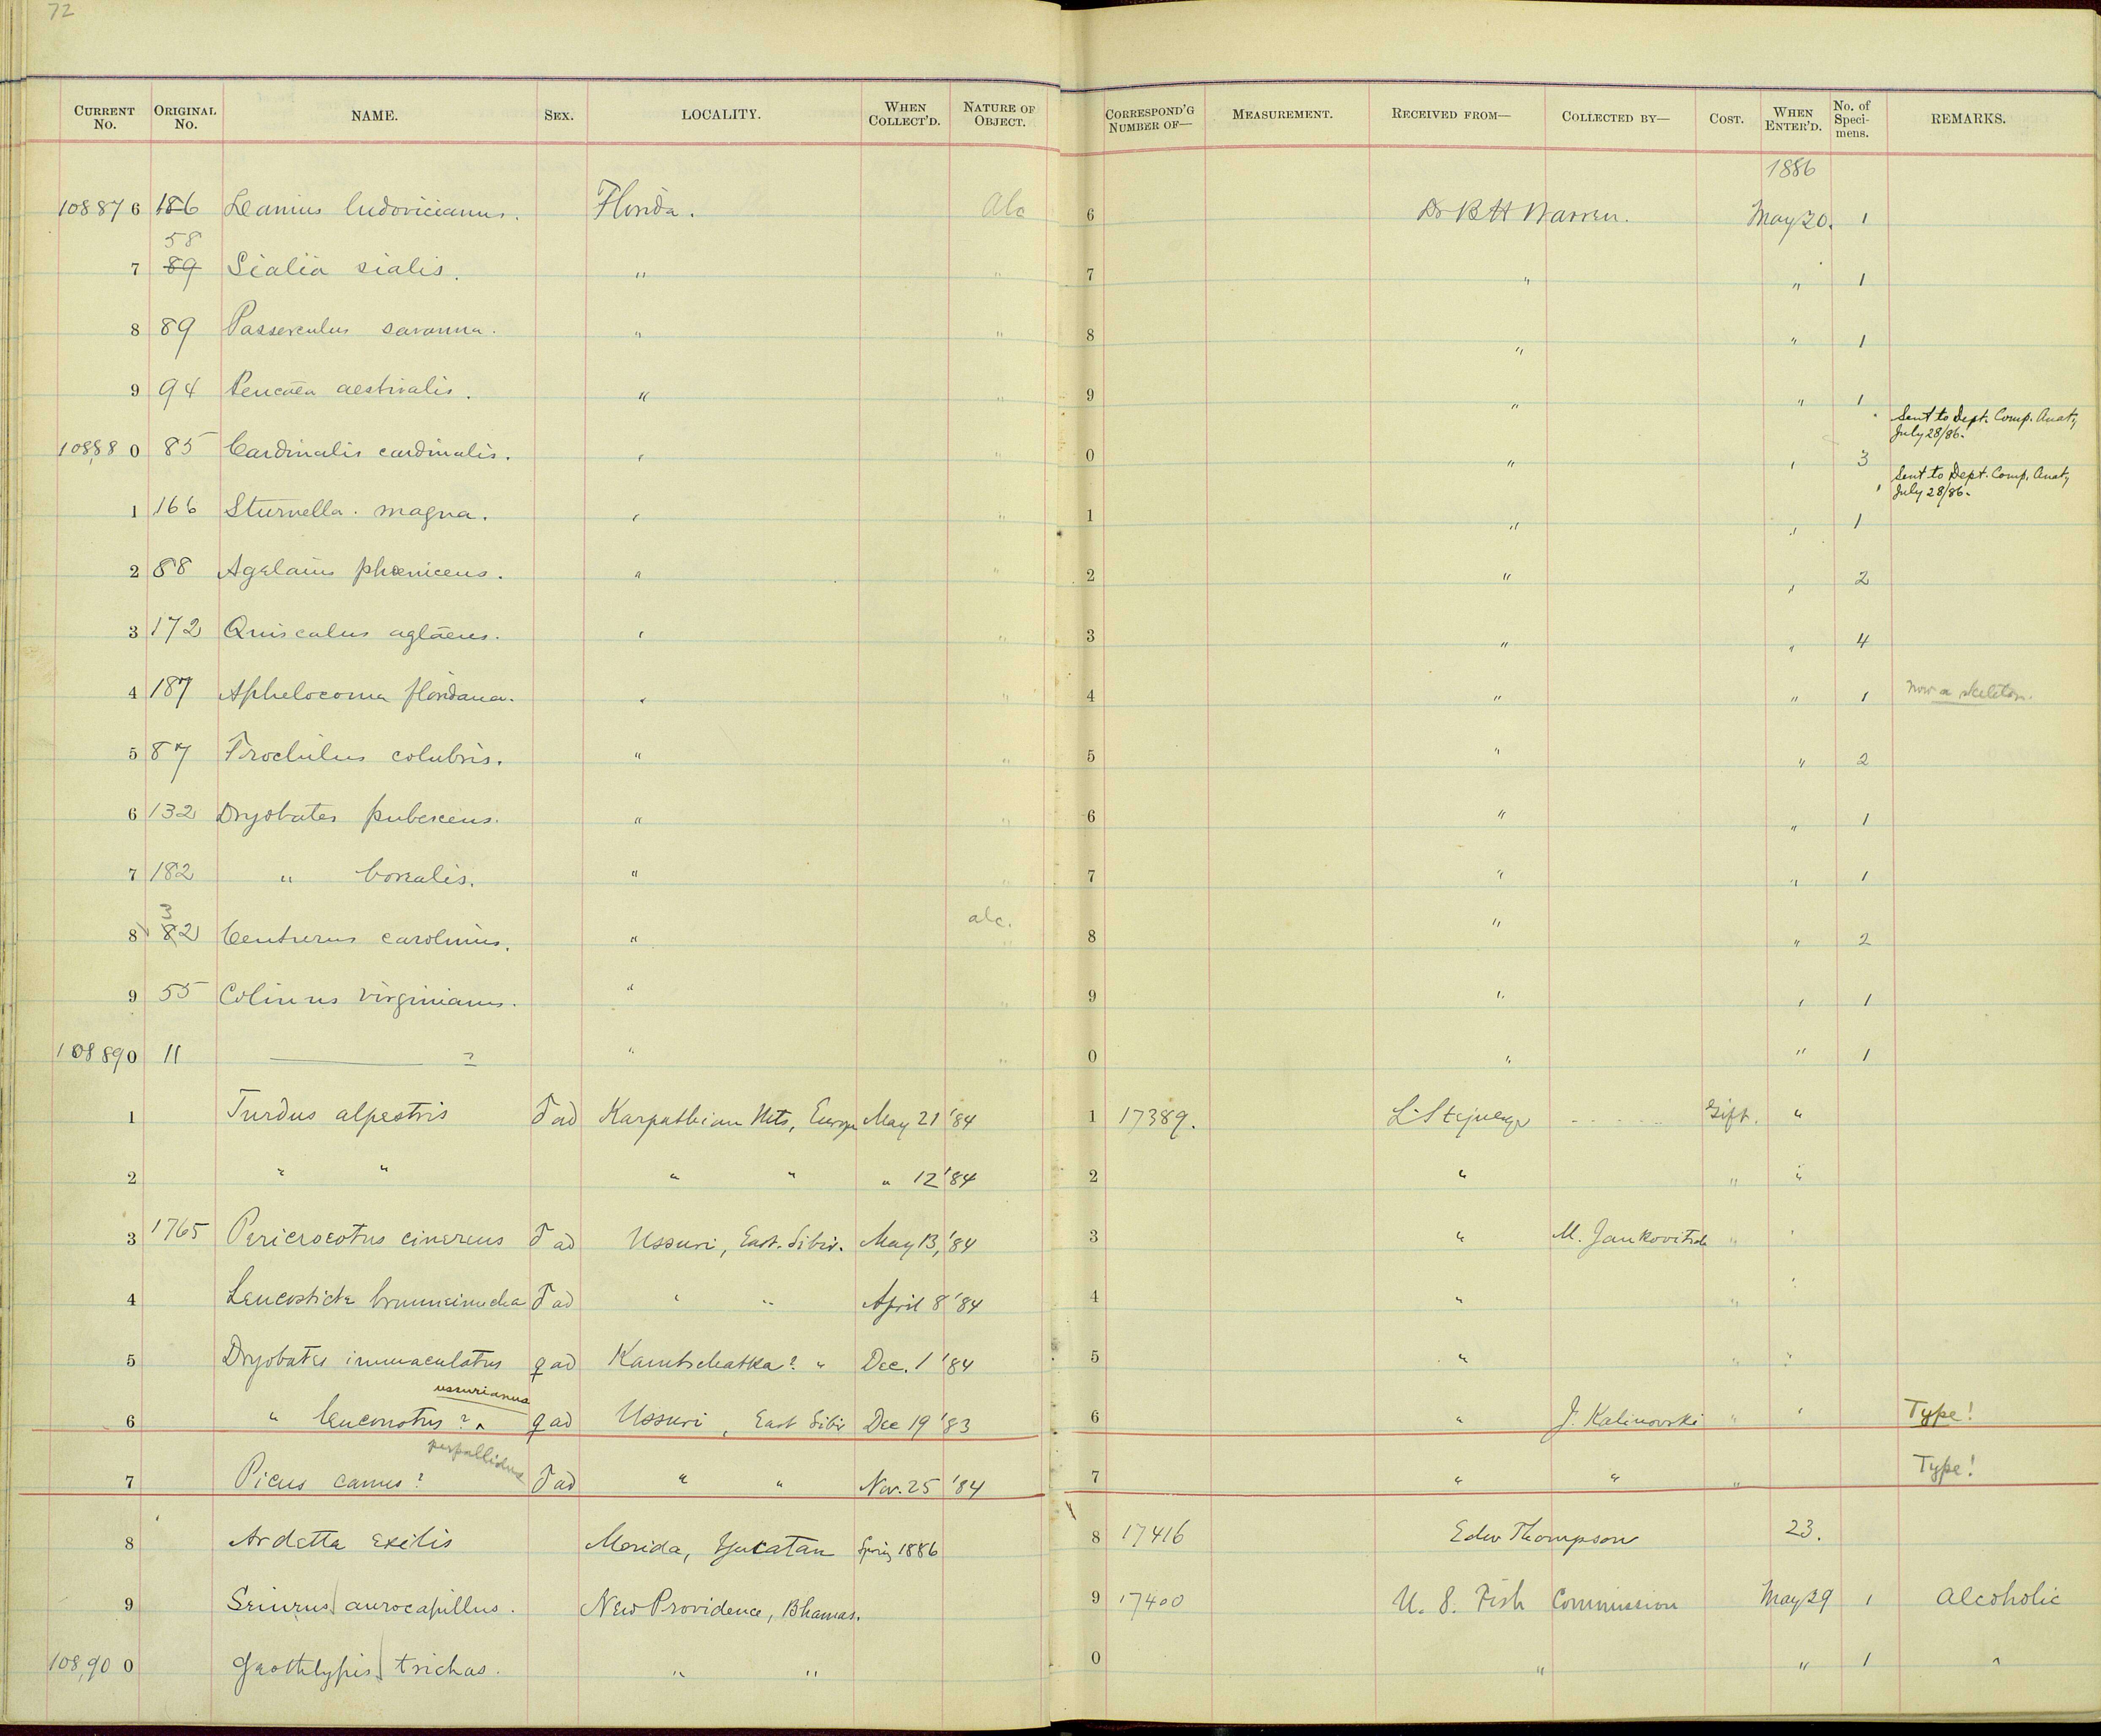 72
CURRENT No. ORIGINAL No. NAME. SEX. LOCALITY. WHEN COLLECT'D. NATURE OF OBJECT. CORRESPOND'G NUMBER OF— MEASUREMENT. RECEIVED FROM— COLLECTED BY— COST. WHEN ENTER'D. No. of Speci-mens. REMARKS.
1886
108876 186 Lanius ludovicianus. Florida. Alc 6 Dr B H Warren. May 20. 1
58
7 89 Sialia sialis. " " 7 " " 1
8 89 Passerculus savanna. " " 8 " " 1
9 94 Peucaea aestivalis. " " 9 " " 1
Sent to Dept. Comp. Anaty
July 28/86.
108880 85 Cardinalis cardinalis. " " 0 " " 3
Sent to Dept. Comp. Anaty
July 28/86.
1 166 Sturnella magna. " " 1 " " 1
2 88 Agelaius phoeniceus. " " 2 " " 2
3 172 Quiscalus aglaeus. " " 3 " " 4
4 187 Aphelocoma floridana. " " 4 " " 1 now a skeleton.
5 87 Trochilus colubris. " " 5 " " 2
6 132 Dryobates pubescens. " " 6 " " 1
7 182 " borealis. " " 7 " " 1
3 alc.
8 82 Centurus carolinus. " " 8 " " 2
9 55 Colinus virginianus. " " 9 " " 1
108890 11 ——— ? " " 0 " " 1
1 Turdus alpestris ♂ ad Karpathian Mts, Europe May 21 '84 1 17389. L. Stejneger ..... Gift. "
2 " " " " " 12 '84 2 " " "
3 1765 Pericrocotus cinereus ♂ ad Ussuri, East. Sibir. May 13, '84 3 " M. Jankovitsch " "
4 Leucosticte brunneinucha ♂ ad " " April 8 '84 4 " " "
5 Dryobates immaculatus ♀ ad Kamtschatka? " Dec. 1 '84 5 " " "
ussurianus
6 " leuconotus ? ^ ♀ ad Ussuri, East Sibir Dec 19 '83 6 " J. Kalinovski " " Type!
perpallidus
7 Picus canus? ♂ ad " " Nov. 25 '84 7 " " " Type!
8 Ardetta exilis Merida, Yucatan Spring 1886 8 17416 Edw Thompson 23.
9 Seiurus aurocapillus. New Providence, Bhamas. 9 17400 U. S. Fish Commission May 29 1 Alcoholic
108,900 Geothlypis trichas. " " 0 " " 1 "